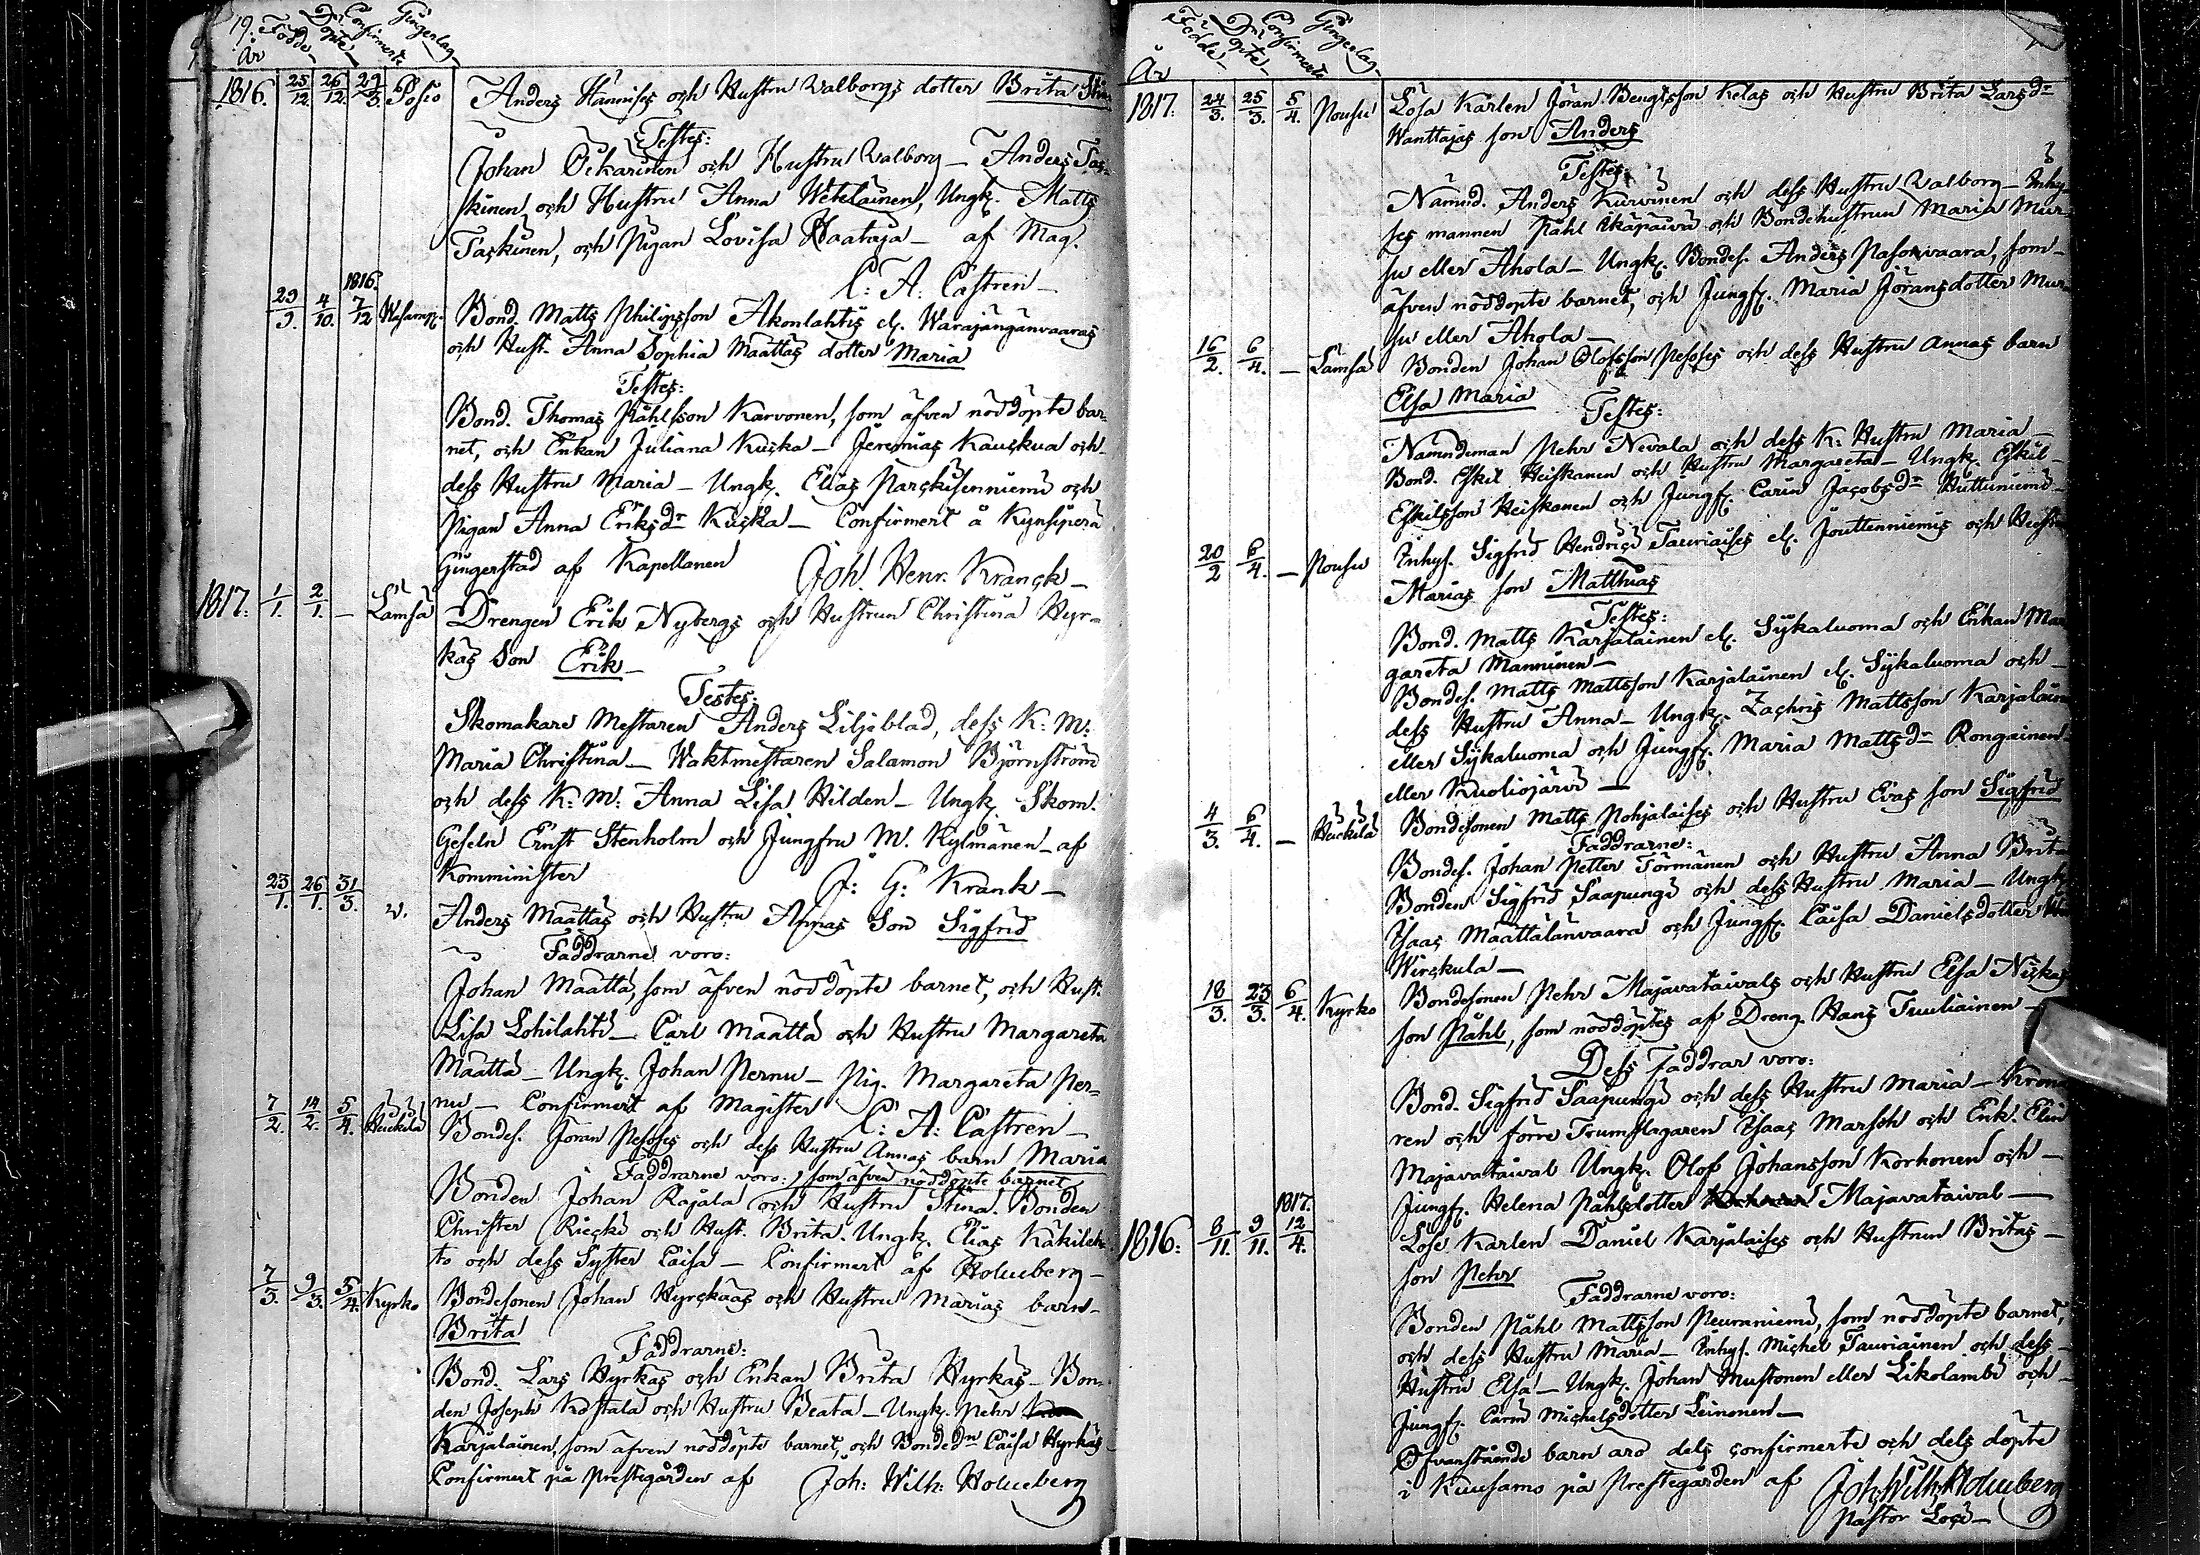 19. Födde Döpte Confirmerte Gingerlag
År
1816. 25/12. 26/12. 29/3. Posio Anders Hännises och Hustru Walborgs dotter Brita
Testes:
Johan Öckarinen och Hustru Walborg — Anders Tas-
kinen och Hustru Anna Wetelainen, Ungk. Matts
Taskinen, och Pigan Lovisa Haataja — af Mag.
C: A: Castren —
29/9. 4/10. 1816. 7/12 Wasarap. Bond. Matts Philipsson Akonlahtis el. Warajänganvaaras
och Hust. Anna Sophia Määttäs dotter Maria
Testes:
Bond. Thomas Påhlsson Karvonen, som äfven nöddöpte bar-
net, och Enkan Juliana Kuska — Jeremias Kauskua och
dess Hustru Maria — Ungk. Elias Parskisenniemi och
Pigan Anna Eriksdr Kuska — Confirmert å Kynsiperä
Gingerstad af Kapellanen Joh. Henr. Kranck —
1817: 1/1. 2/1. — Lämsä Drengen Erik Nybergs och Hustrun Christina Hyr-
käs Son Erik —
Testes:
Skomakare Mestaren Anders Liljeblad, dess K: M:
Maria Christina — Waktmestaren Salamon Björnström
och dess K: M: Anna Lisa Hilden — Ungk. Skom.
Geseln Ernst Stenholm och Jungfru M. Kylmänen — af
Komminister J: G: Krank —
23/1. 26/1. 31/3. v. Anders Määttäs och Hustru Annas Son Sigfrid
Faddrarne voro:
Johan Määttä, som äfven nöddöpte barnet, och Hust.
Lisa Lohilahti — Carl Määttä och Hustru Margareta
Määttä — Ungk. Johan Pernu — Pig. Margareta Per-
nu — Confirmert af Magister C: A: Castren —
7/2. 14/2. 5/4. Heickilä Bondes. Jöran Pesoses och dess Hustru Annas barn Maria
Faddrarne voro: som äfven nöddöpte barnet
Bonden Johan Rajala och Hustru Stina. Bonden
Christer Riecki och Hust. Brita. Ungk. Elias Käkileh-
to och dess Syster Caisa — Confirmert af Holmberg —
7/3. 9/3. 5/4. Kyrko Bondesonen Johan Hyrckäas och Hustru Marias barn
Brita
Faddrarne:
Bond. Lars Hyrkäs och Enkan Brita Hyrkäs — Bon-
den Joseph Kostala och Hustru Beata — Ungk. Pehr
Karjalainen, som äfven nöddöpte barnet, och Bondedr Caisa Hyrkäs
Confirmert på Prestegården af Joh: Wilh: Holmberg
Födde Döpte Confirmerte Gingerlag
År
1817: 24/3. 25/3. 5/4. Pousu Lösa Karlen Jöran Bengtsson Kelas och Hustru Brita Larsdr
Wanttajas son Anders
Testes:
Nämnd. Anders Kurvinen och dess Hustru Walborg — Inhy-
ses mannen Påhl Ikäpäivä och Bondehustrun Maria Mur-
su eller Ahola — Ungk. Bondes. Anders Pasonvaara, som
äfven nöddöpte barnet, och Jungf. Maria Jöransdotter Mur-
su eller Ahola —
16/2. 6/4. — Lämsä Bonden Johan Olofsson Pesoses och dess Hustru Annas barn
Elsa Maria
Testes:
Nämndeman Pehr Nevala och dess K: Hustru Maria —
Bond. Eskil Heiskanen och Hustru Margareta — Ungk. Eskil
Eskilsson Heiskanen och Jungf. Carin Jacobsdr Huttuniemi —
20/2 6/4. — Pousu Inhys. Sigfrid Hendrics Tauriaises el. Jouttenniemis och Hustru
Marias son Matthias
Testes:
Bond. Matts Karjalainen el. Sykaluoma och Enkan Mar-
gareta Manninen —
Bondes. Matts Mattsson Karjalainen el. Sykaluoma och
dess Hustru Anna — Ungk. Zachris Mattsson Karjalainen
eller Sykaluoma och Jungf. Maria Mattsdr Rongainen
eller Kuoliojärvi —
4/3. 6/4. — Heickilä Bondesonen Matts Pohjalaises och Hustru Evas son Sigfrid
Faddrarne:
Bondes. Johan Petter Törmänen och Hustru Anna Brit-
Bonden Sigfrid Saapungi och dess Hustru Maria — Ungk.
Isaac Määttälänvaara och Jungf. Caisa Danielsdotter
Wirckula —
18/3. 23/3. 6/4. Kyrko Bondesonen Pehr Majavataivals och Hustru Elsa Nickas
son Påhl, som nöddöptes af Dreng. Hans Tuuliainen —
Dess Faddrar voro:
Bond. Sigfrid Saapungi och dess Hustru Maria — Krono
ren och förre Trumslagaren Isaac Marsch och Enk. Elin
Majavataival Ungk. Olof Johansson Korhonen och
Jungf. Helena Påhlsdotter Majavataival —
1816: 8/11. 9/11. 1817. 12/4. Löse Karlen Daniel Karjalaises och Hustrun Britas
son Pehr
Faddrarne voro:
Bonden Påhl Mattsson Peuraniemi, som nöddöpte barnet,
och dess Hustru Maria — Inhys. Michel Tauriainen och dess
Hustru Elsa — Ungk. Johan Mustonen eller Likolambi och
Jungf. Carin Michelsdotter Leinonen —
Ofvanstående barn äro dels confirmerte och dels döpte
i Kuusamo på Prestegården af Joh: Wilh: Holmberg
Pastor Loci —